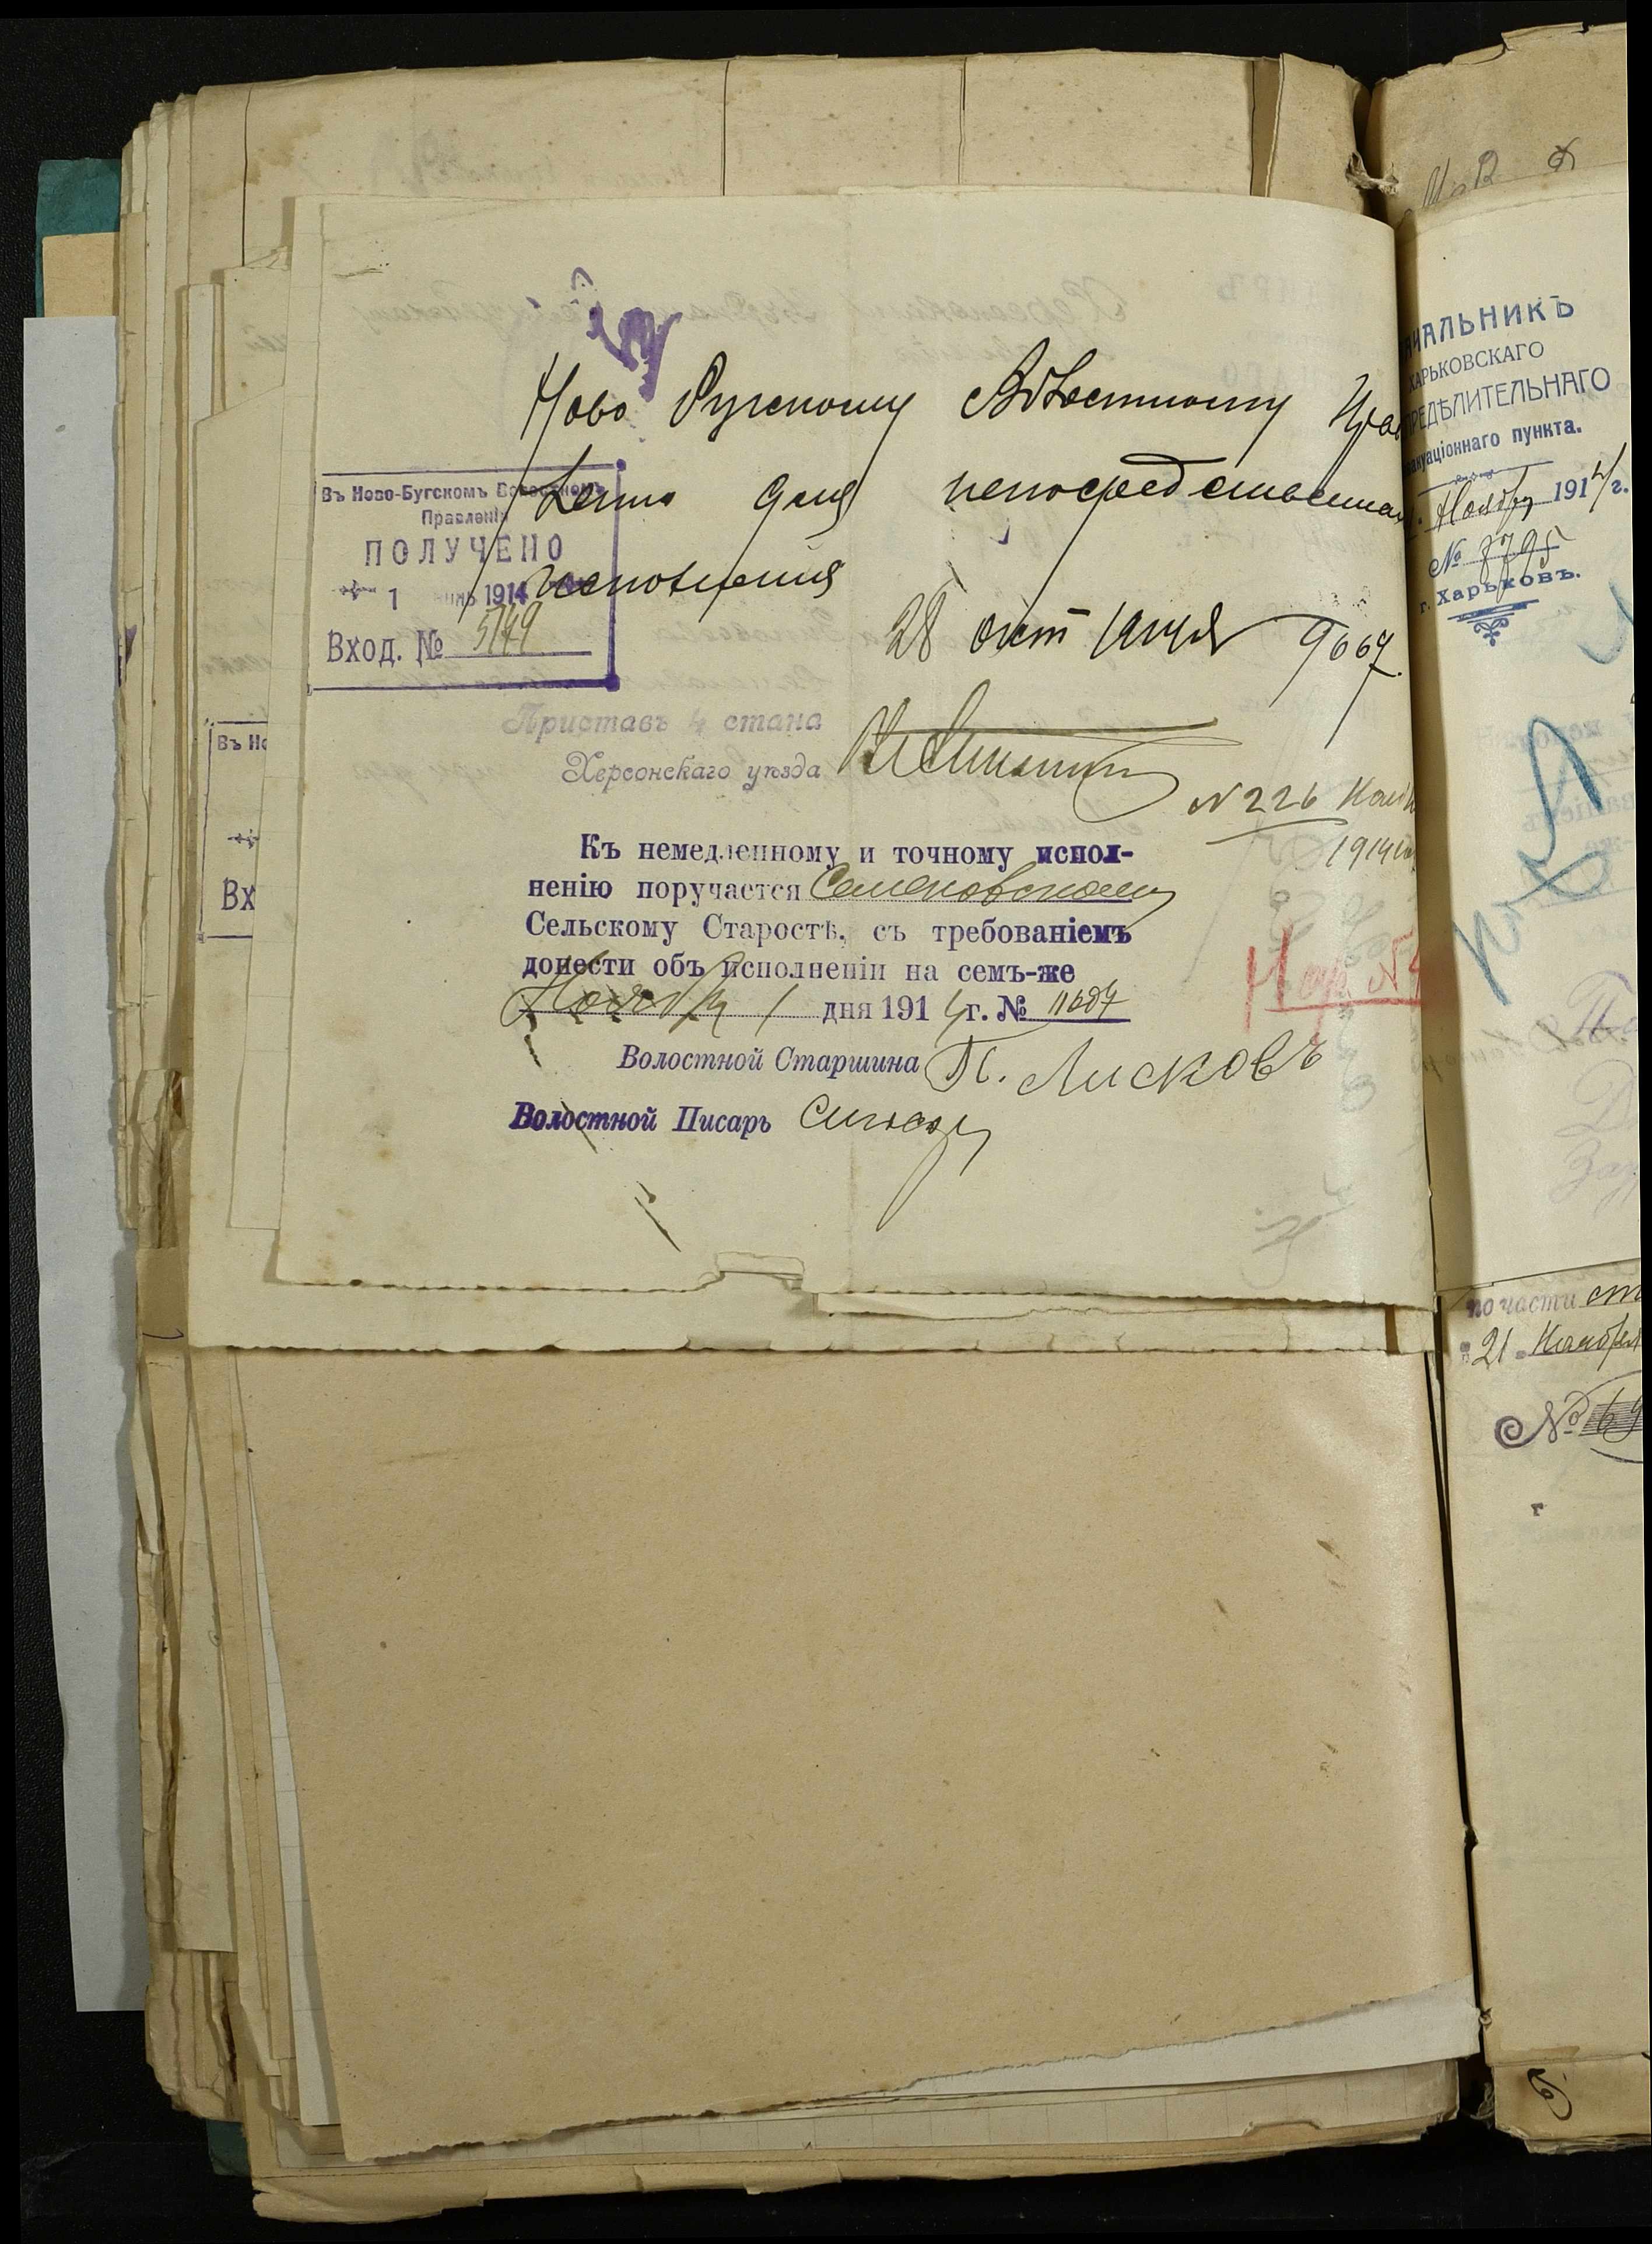 Ново Бугскому Волостному Прав
ленію для непосредственнаго
исполненія
28 окт 1914 г 9667.
Въ Ново-Бугскомъ Волостномъ
Правленіи
ПОЛУЧЕНО
1 1914
Вход. № 5149
Приставъ 4 стана
Херсонскаго уѣзда
N 226
1914
Къ немедленному и точному испол-
ненію поручается Семеновскому
Сельскому Старостѣ, съ требованіемъ
донести объ исполненіи на семъ-же
Ноября 1 дня 1914 г. № 11687
Волостной Старшина П. Лисковъ
Волостной Писарь
Въ Но
Вх
НАЧАЛЬНИКЪ
ХАРЬКОВСКАГО
РЕДѢЛИТЕЛЬНАГО
куаціоннаго пункта.
Ноября 1914 г.
№ 8795
г. Харьковъ.
по части
21 Ноября
№ 69